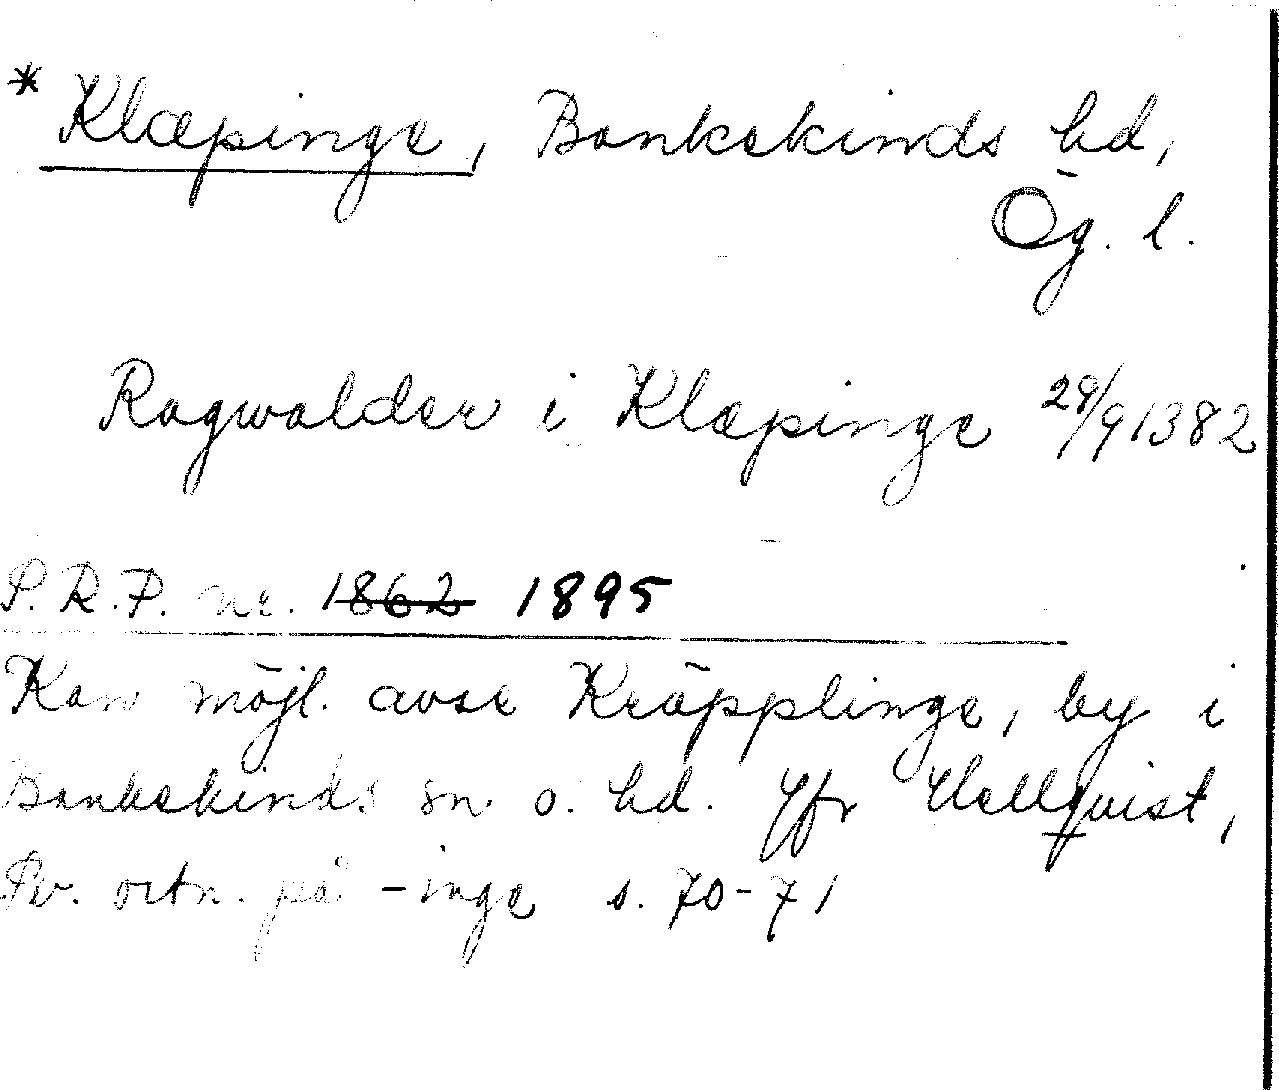 * Klæpinge, Bankekinds hd,
Ög. l.
Ragwalder i Klæpinge 29/9 1382
P.R.P. nr. 1862 1895
Kan möjl. avse Kräpplinge, by i
Bankekinds sn o. hd. Jfr Hellqvist,
Sv. ortn. på -inge s. 70-71